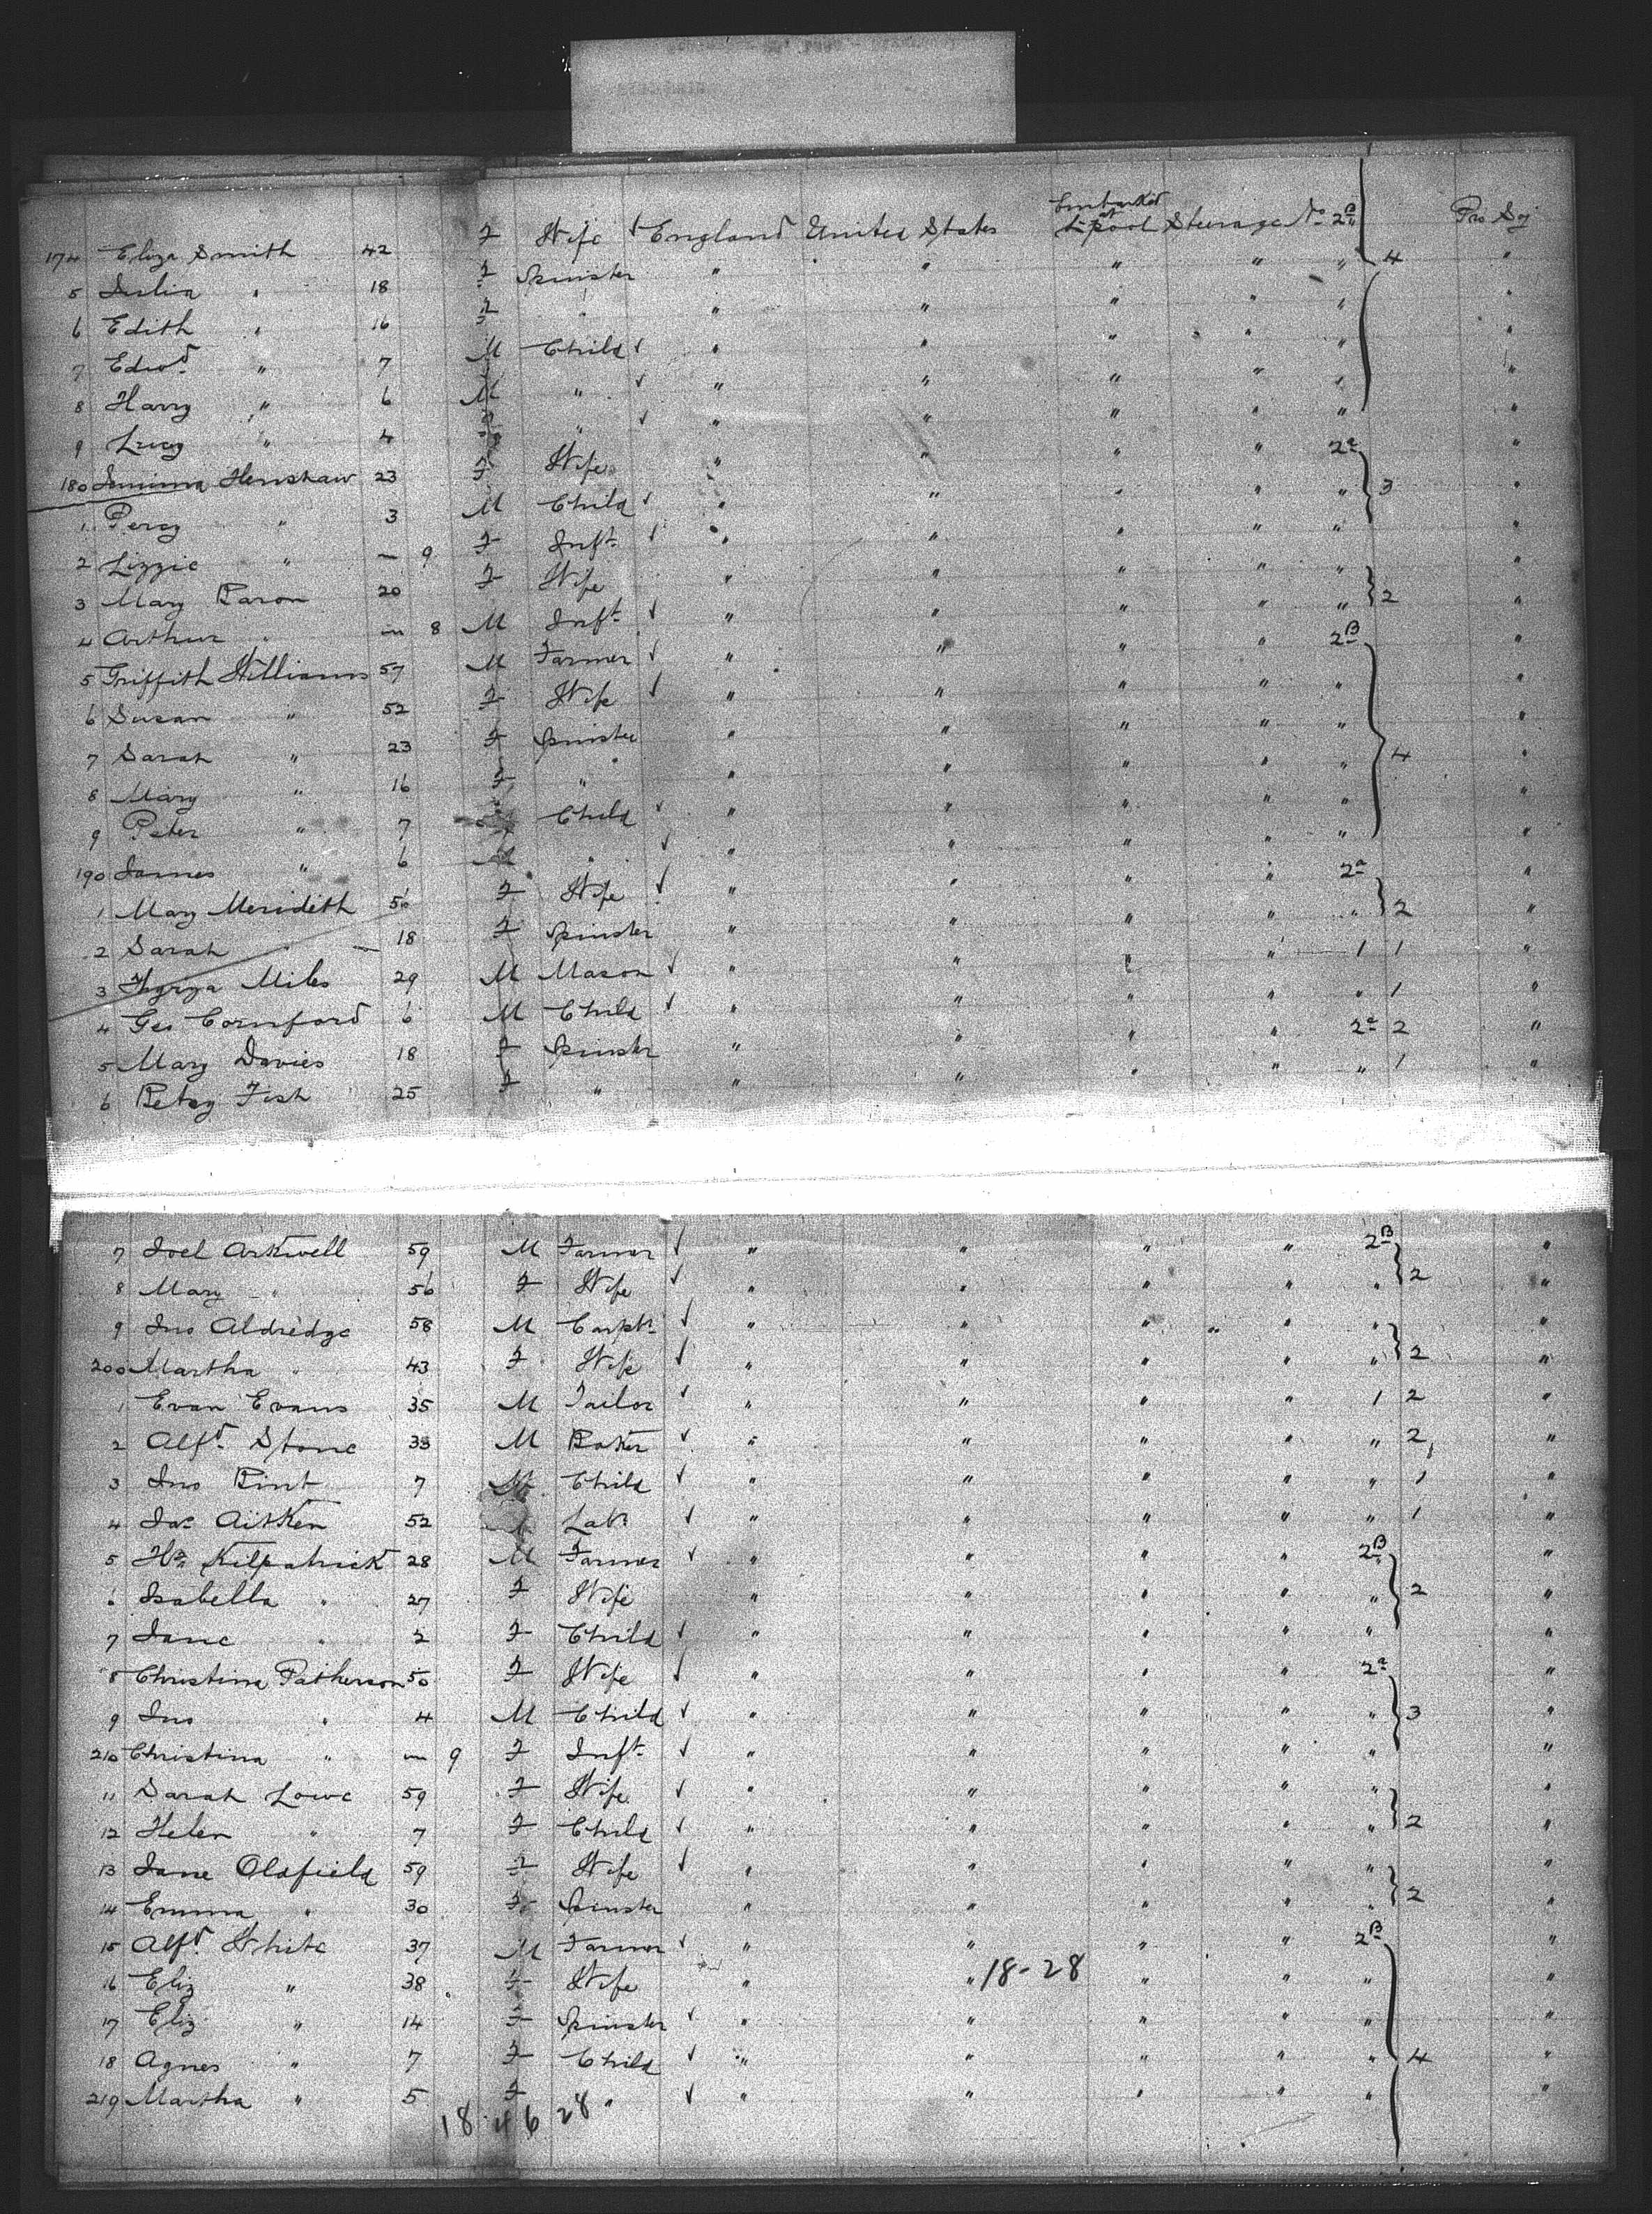 Embarked at
174 Eliza Smith 42 F Wife ✓ England United States L'pool Steerage No 2B Pro Sy
5 Julia " 18 F Spinster " " " " " 4 "
6 Edith " 16 F " " " " " " "
7 Edwd " 7 M Child ✓ " " " " " "
8 Harry " 6 M " ✓ " " " " " "
9 Lucy " 4 F " ✓ " " " " " "
180 Jemima Henshaw 23 F Wife " " " " 2a "
1 Percy " 3 M Child ✓ " " " " " 3 "
2 Lizzie " — 9 F Inft ✓ " " " " " "
3 Mary Baron 20 F Wife " " " " " "
4 Arthur " in 8 M Inft ✓ " " " " " 2 "
5 Griffith Williams 57 M Farmer ✓ " " " " 2B "
6 Susan " 52 F Wife ✓ " " " " " "
7 Sarah " 23 F Spinster " " " " " "
8 Mary " 16 F " " " " " " 4 "
9 Peter " 7 Child ✓ " " " " " "
190 James " 6 M " ✓ " " " " " "
1 Mary Merideth 56 F Wife ✓ " " " " 2a "
2 Sarah " — 18 F Spinster " " " " " 2 "
3 Miles 29 M Mason ✓ " " " " 1 1 "
4 Geo Cornford 6 M Child ✓ " " " " " 1 "
5 Mary Davies 18 F Spinster " " " " 2a 2 "
6 Betsy Fish 25 F " " " " " " 1 "
7 Joel Arkwell 59 M Farmer ✓ " " " " 2B "
8 Mary " 56 F Wife ✓ " " " " " 2 "
9 Jno Aldredge 58 M Carptr ✓ " " " " " "
200 Martha " 43 F Wife ✓ " " " " " 2 "
1 Evan Evans 35 M Tailor ✓ " " " " 1 2 "
2 Alfd Stone 33 M Baker ✓ " " " " " 2 "
3 Jno Bint 7 M Child ✓ " " " " " 1 "
4 Jas Aitken 52 Labr ✓ " " " " " 1 "
5 Kilpatrick 28 M Farmer ✓ " " " " 2B "
6 Isabella " 27 F Wife " " " " " 2 "
7 Jane " 2 F Child ✓ " " " " " "
8 Christina Patherson 50 F Wife ✓ " " " " 2a "
9 Jno " 4 M Child ✓ " " " " " 3 "
210 Christina " in 9 F Inft ✓ " " " " " "
11 Sarah Lowe 59 F Wife ✓ " " " " " "
12 Helen " 7 F Child ✓ " " " " " 2 "
13 Jane Oldfield 59 F Wife ✓ " " " " " "
14 Emma " 30 F Spinster " " " " " 2 "
15 Alfd White 37 M Farmer ✓ " " " " 2B "
16 Eliz " 38 F Wife " " 18-28 " " " "
17 Eliz " 14 F Spinster ✓ " " " " " "
18 Agnes " 7 F Child ✓ " " " " " 4 "
219 Martha " 5 F " ✓ " " " " " "
18 46 28